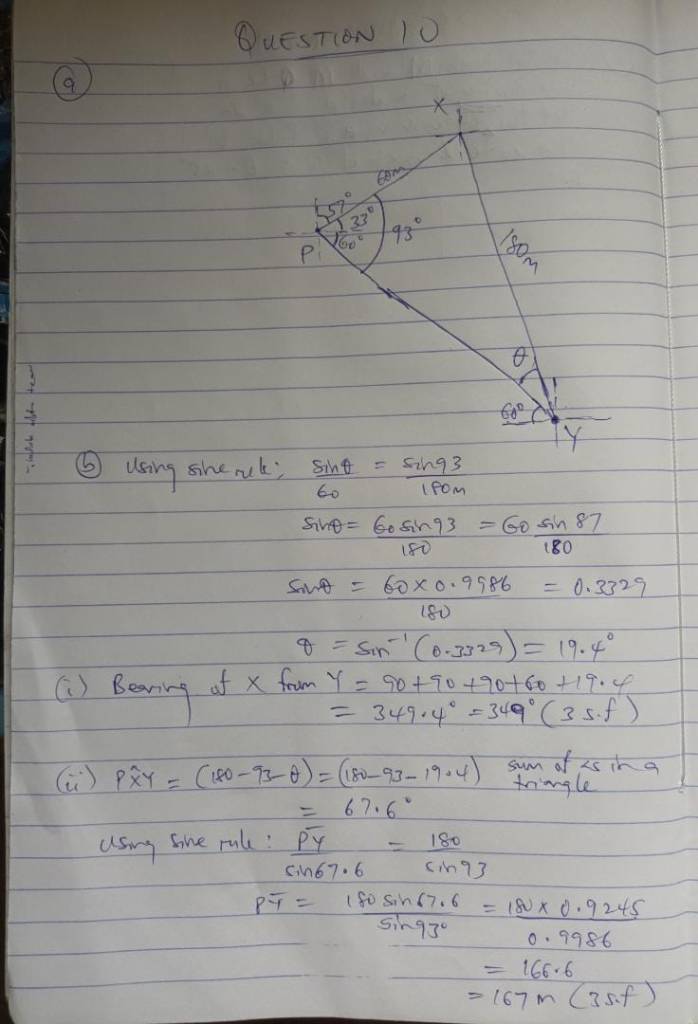 QUESTION 10
(a)
X
60m
57°
33°
60°
93°
P
180m
θ
60°
Y
(b) Using sine rule; sinθ/60 = sin93/180m
sinθ = 60sin93/180 = 60 sin 87/180
sinθ = 60×0.9986/180 = 0.3329
θ = sin⁻¹(0.3329) = 19.4°
(i) Bearing of X from Y = 90+90+90+60+19.4
= 349.4° = 349° (3 s.f)
(ii) PX̂Y = (180-93-θ) = (180-93-19.4) sum of <s in a triangle
= 67.6°
Using sine rule: PY/sin67.6 = 180/sin93
PY = 180 sin67.6/sin93° = 180×0.9245/0.9986
= 166.6
= 167m (3s.f)